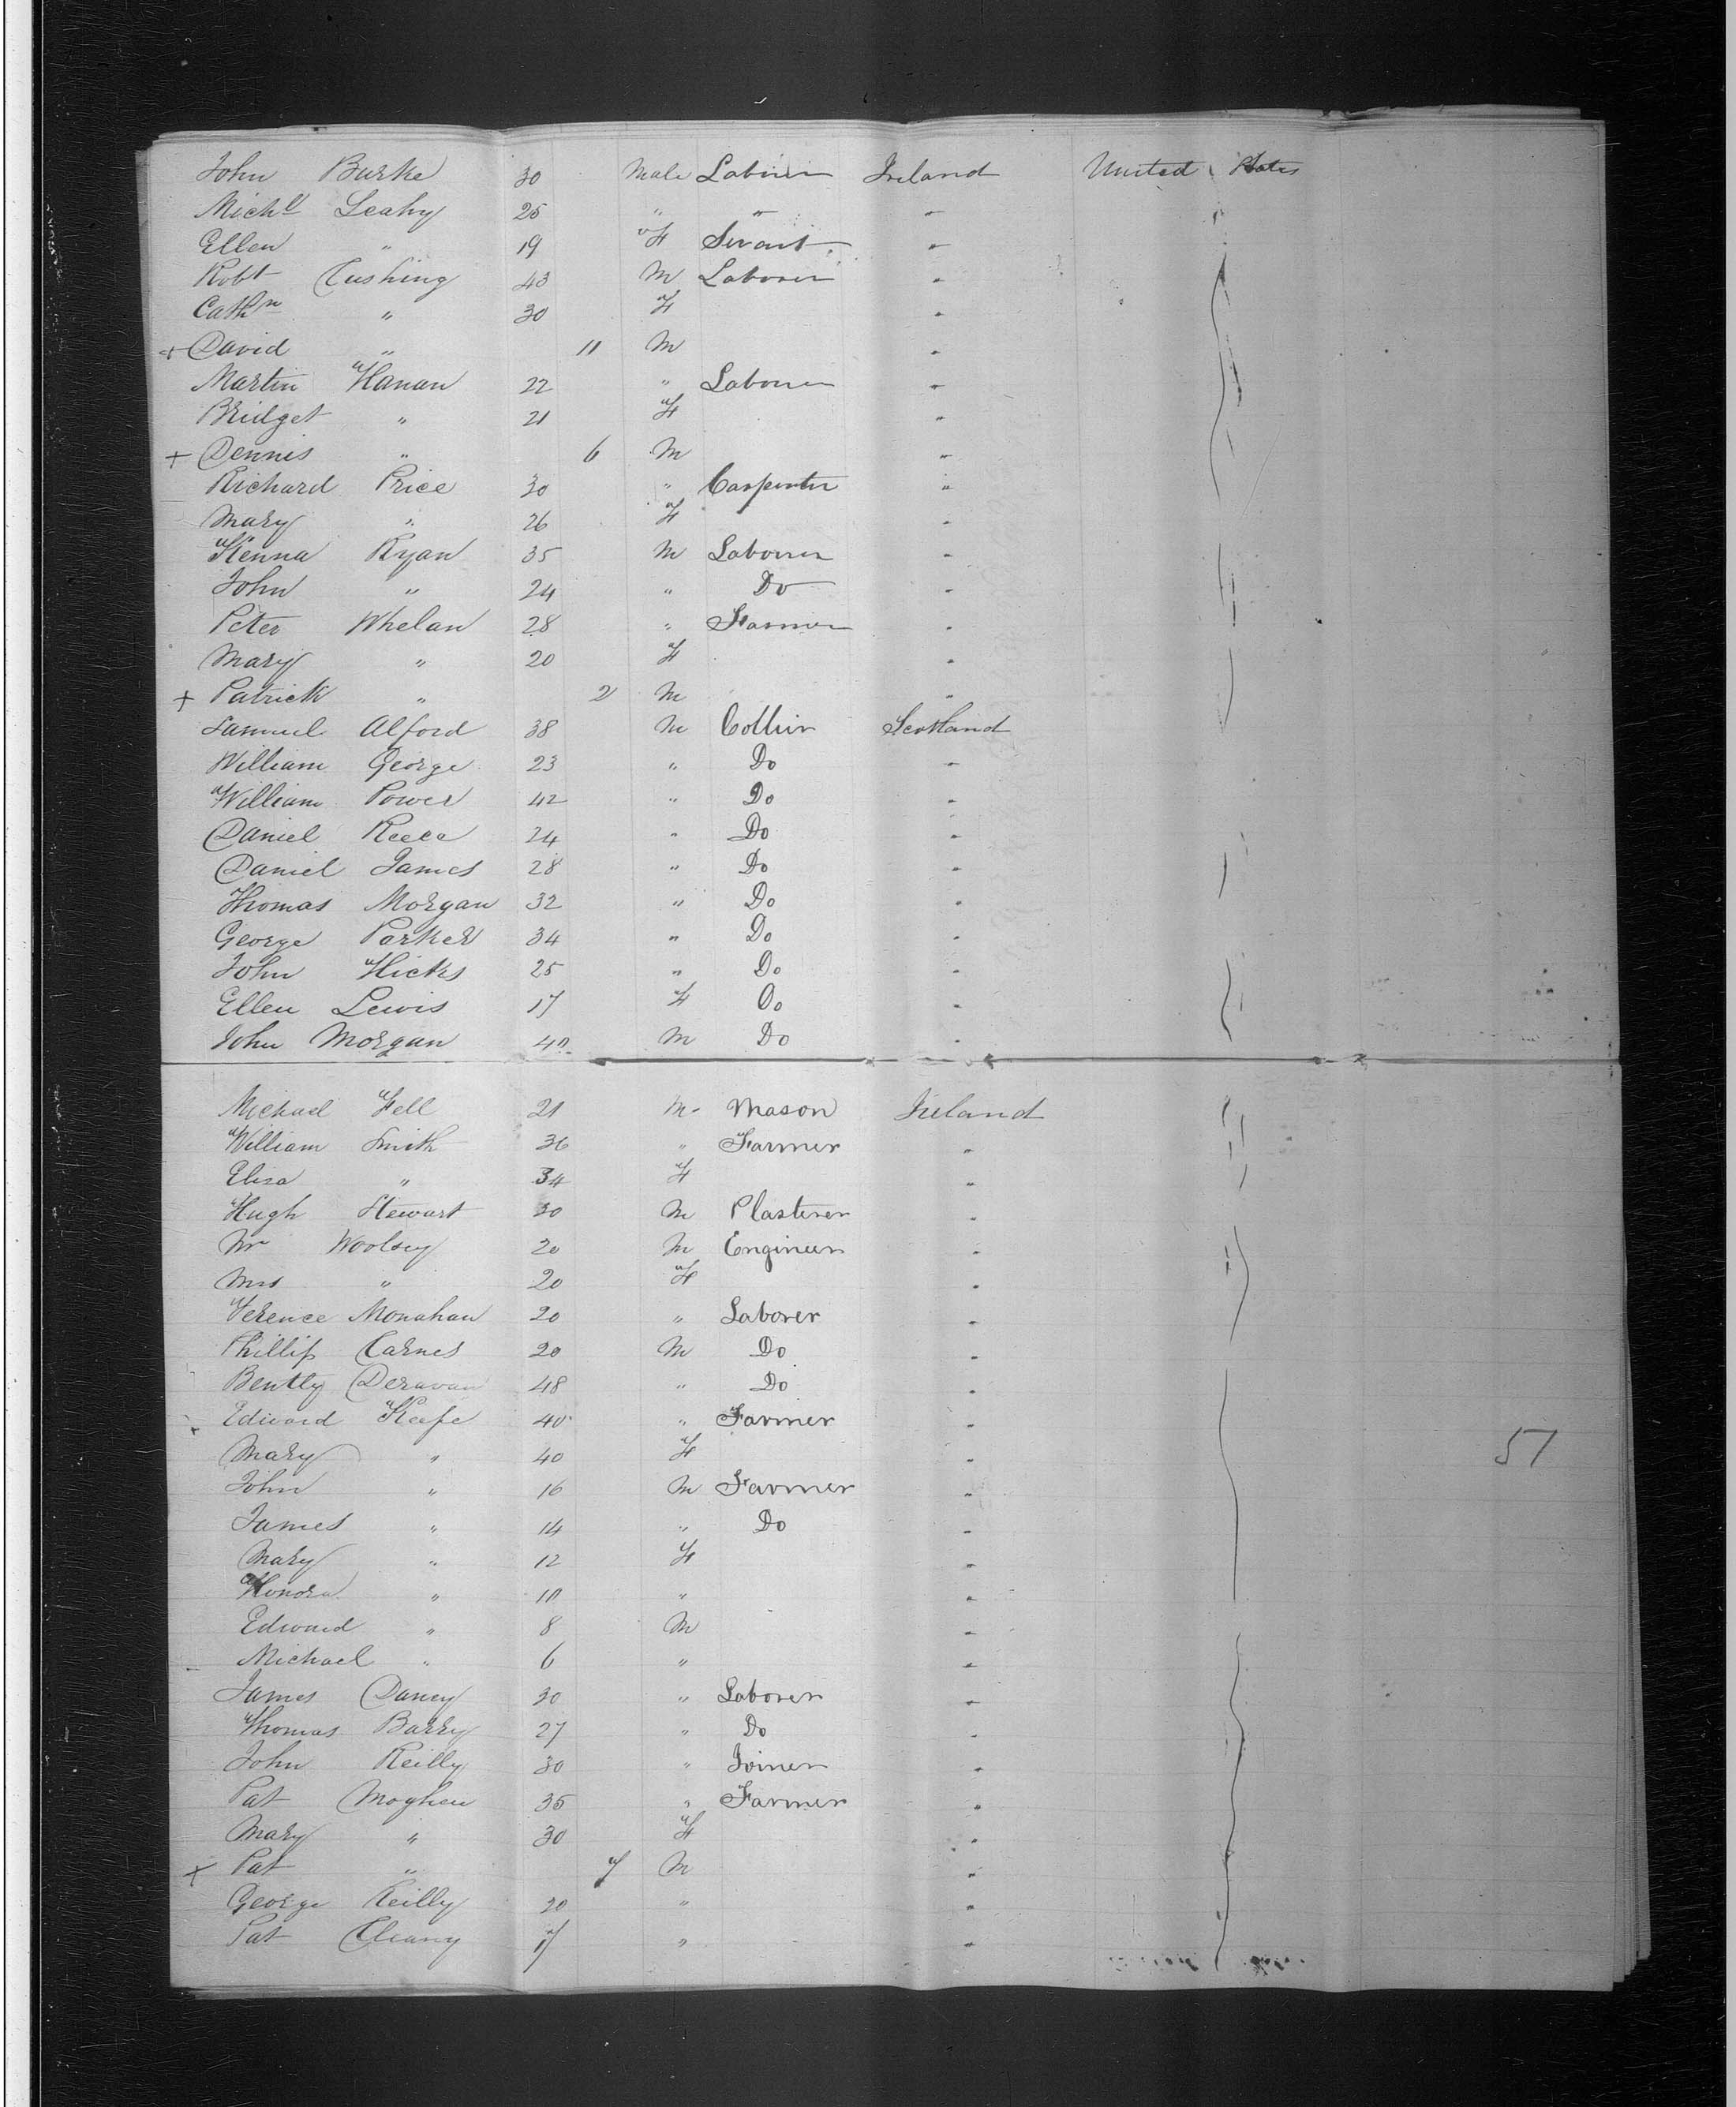 John Burke 30 Male Laborer Ireland United States
Michl Leahy 25 " " "
Ellen " 19 F Servant "
Robt Cushing 43 M Laborer "
Cathn " 30 F "
+ David " 11 M "
Martin Hanan 22 " Laborer "
Bridget " 21 F "
+ Dennis " 6 M "
Richard Price 30 " Carpenter "
Mary " 26 F "
Kenna Ryan 35 M Laborer "
John " 24 " Do "
Peter Whelan 28 " Farmer "
Mary " 20 F "
+ Patrick " 2 M "
Samuel Alford 38 M Collier Scotland
William George 23 " Do "
William Power 42 " Do "
Daniel Reece 24 " Do "
Daniel James 28 " Do "
Thomas Morgan 32 " Do "
George Parker 34 " Do "
John Hicks 25 " Do "
Ellen Lewis 17 F Do "
John Morgan 40 M Do "
Michael Fell 21 M Mason Ireland
William Smith 36 " Farmer "
Eliza " 34 F "
Hugh Stewart 30 M Plasterer "
Mr Woolsey 20 M Engineer "
Mrs " 20 F "
Terence Monahan 20 " Laborer "
Phillip Carnes 20 M Do "
Bently Deravan 48 " Do "
Edward Keefe 40 " Farmer "
Mary " 40 F " 57
John " 16 M Farmer "
James " 14 " Do "
Mary " 12 F "
Honora " 10 " "
Edward " 8 M "
Michael " 6 " "
James Dancy 30 " Laborer "
Thomas Barry 27 " Do "
John Reilly 30 " Joiner "
Pat Moghen 35 " Farmer "
Mary " 30 F "
+ Pat " 7 M "
George Reilly 20 " "
Pat Cleany 17 " "